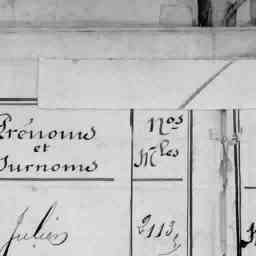 Prénoms Nos
et Mles
Surnoms
Julien 2113